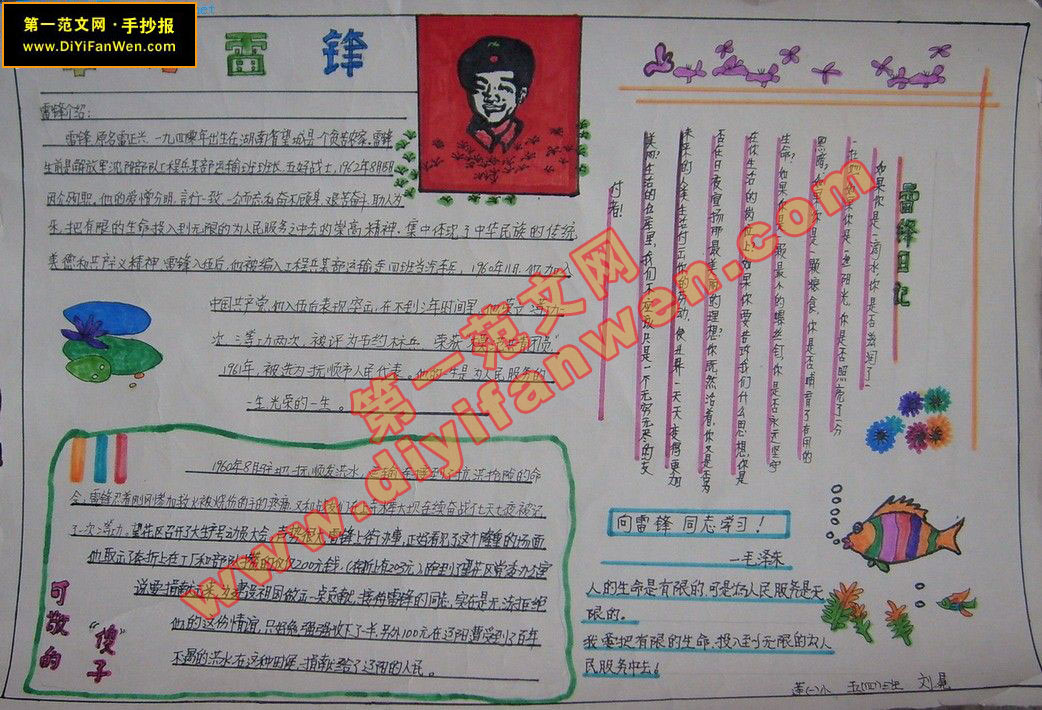 第一范文网·手抄报
www.DiYiFanWen.com
雷锋
雷锋介绍:
雷锋,原名雷正兴.一九四零年出生在湖南省望城县一个贫苦农家.雷锋
生前是解放军沈阳部队工程兵某部运输班班长.五好战士,1962年8月15日
因公殉职.他的爱憎分明.言行一致.公而忘私.奋不顾身.艰苦奋斗.助人为
乐,把有限的生命投入到无限的为人民服务之中去的崇高精神.集中体现了中华民族的传统
美德和共产主义精神.雷锋入伍后,他被编入工程兵某部运输连四班当汽车兵,1960年11月,他加入
中国共产党,他入伍后表现突出,在不到三年时间里,
次.三等功两次,被评为节约标兵,荣获
1961年,被选为抚顺市人民代表。他的一生是为人民服务的
一生,光荣的一生。
雷锋日记
如果你是一滴水,你是否滋润了一
一寸土地?如果你是一线阳光,你是否照亮了一分
黑暗?如果你是一颗粮食,你是否哺育了有用的
生命?如果你是一颗最小的螺丝钉,你是否永远坚守
在你生活的岗位上?如果你要告诉我们什么思想,你是
否在日夜宣扬那最美丽的理想?你既然活着,你又是否为
未来的人类生活付出你的劳动,使世界一天天变得更加
美丽?
生活的仓库里,我们不应该只是一个无穷无尽的支
付者!
1960年8月
令,雷锋忍着刚刚参加救火被烧伤的手的疼痛又和战友们在
大坝连续奋战了七天七夜,被记
了一次二等功.望花区召开了大生产号动员大会,
雷锋上街办事,正好看见了这个隆重的场面,
他取了
200元钱.(存折上有203元)
望花区党委办公室
说要捐献出来,为建设祖国做一点贡献,接待雷锋的同志,实在是无法拒绝
他的这份情谊,只好
收下了一半.另外100元在辽阳遭受到了百年
不遇的洪水.在这种时候,捐献给了辽阳的人民。
可敬的“傻”子
向雷锋 同志学习!
—毛泽东
人的生命是有限的,可是,为人民服务是无
限的。
我要把有限的生命,投入到无限的为人
民服务中去!
刘晃
第一范文网
www.diyifanwen.com